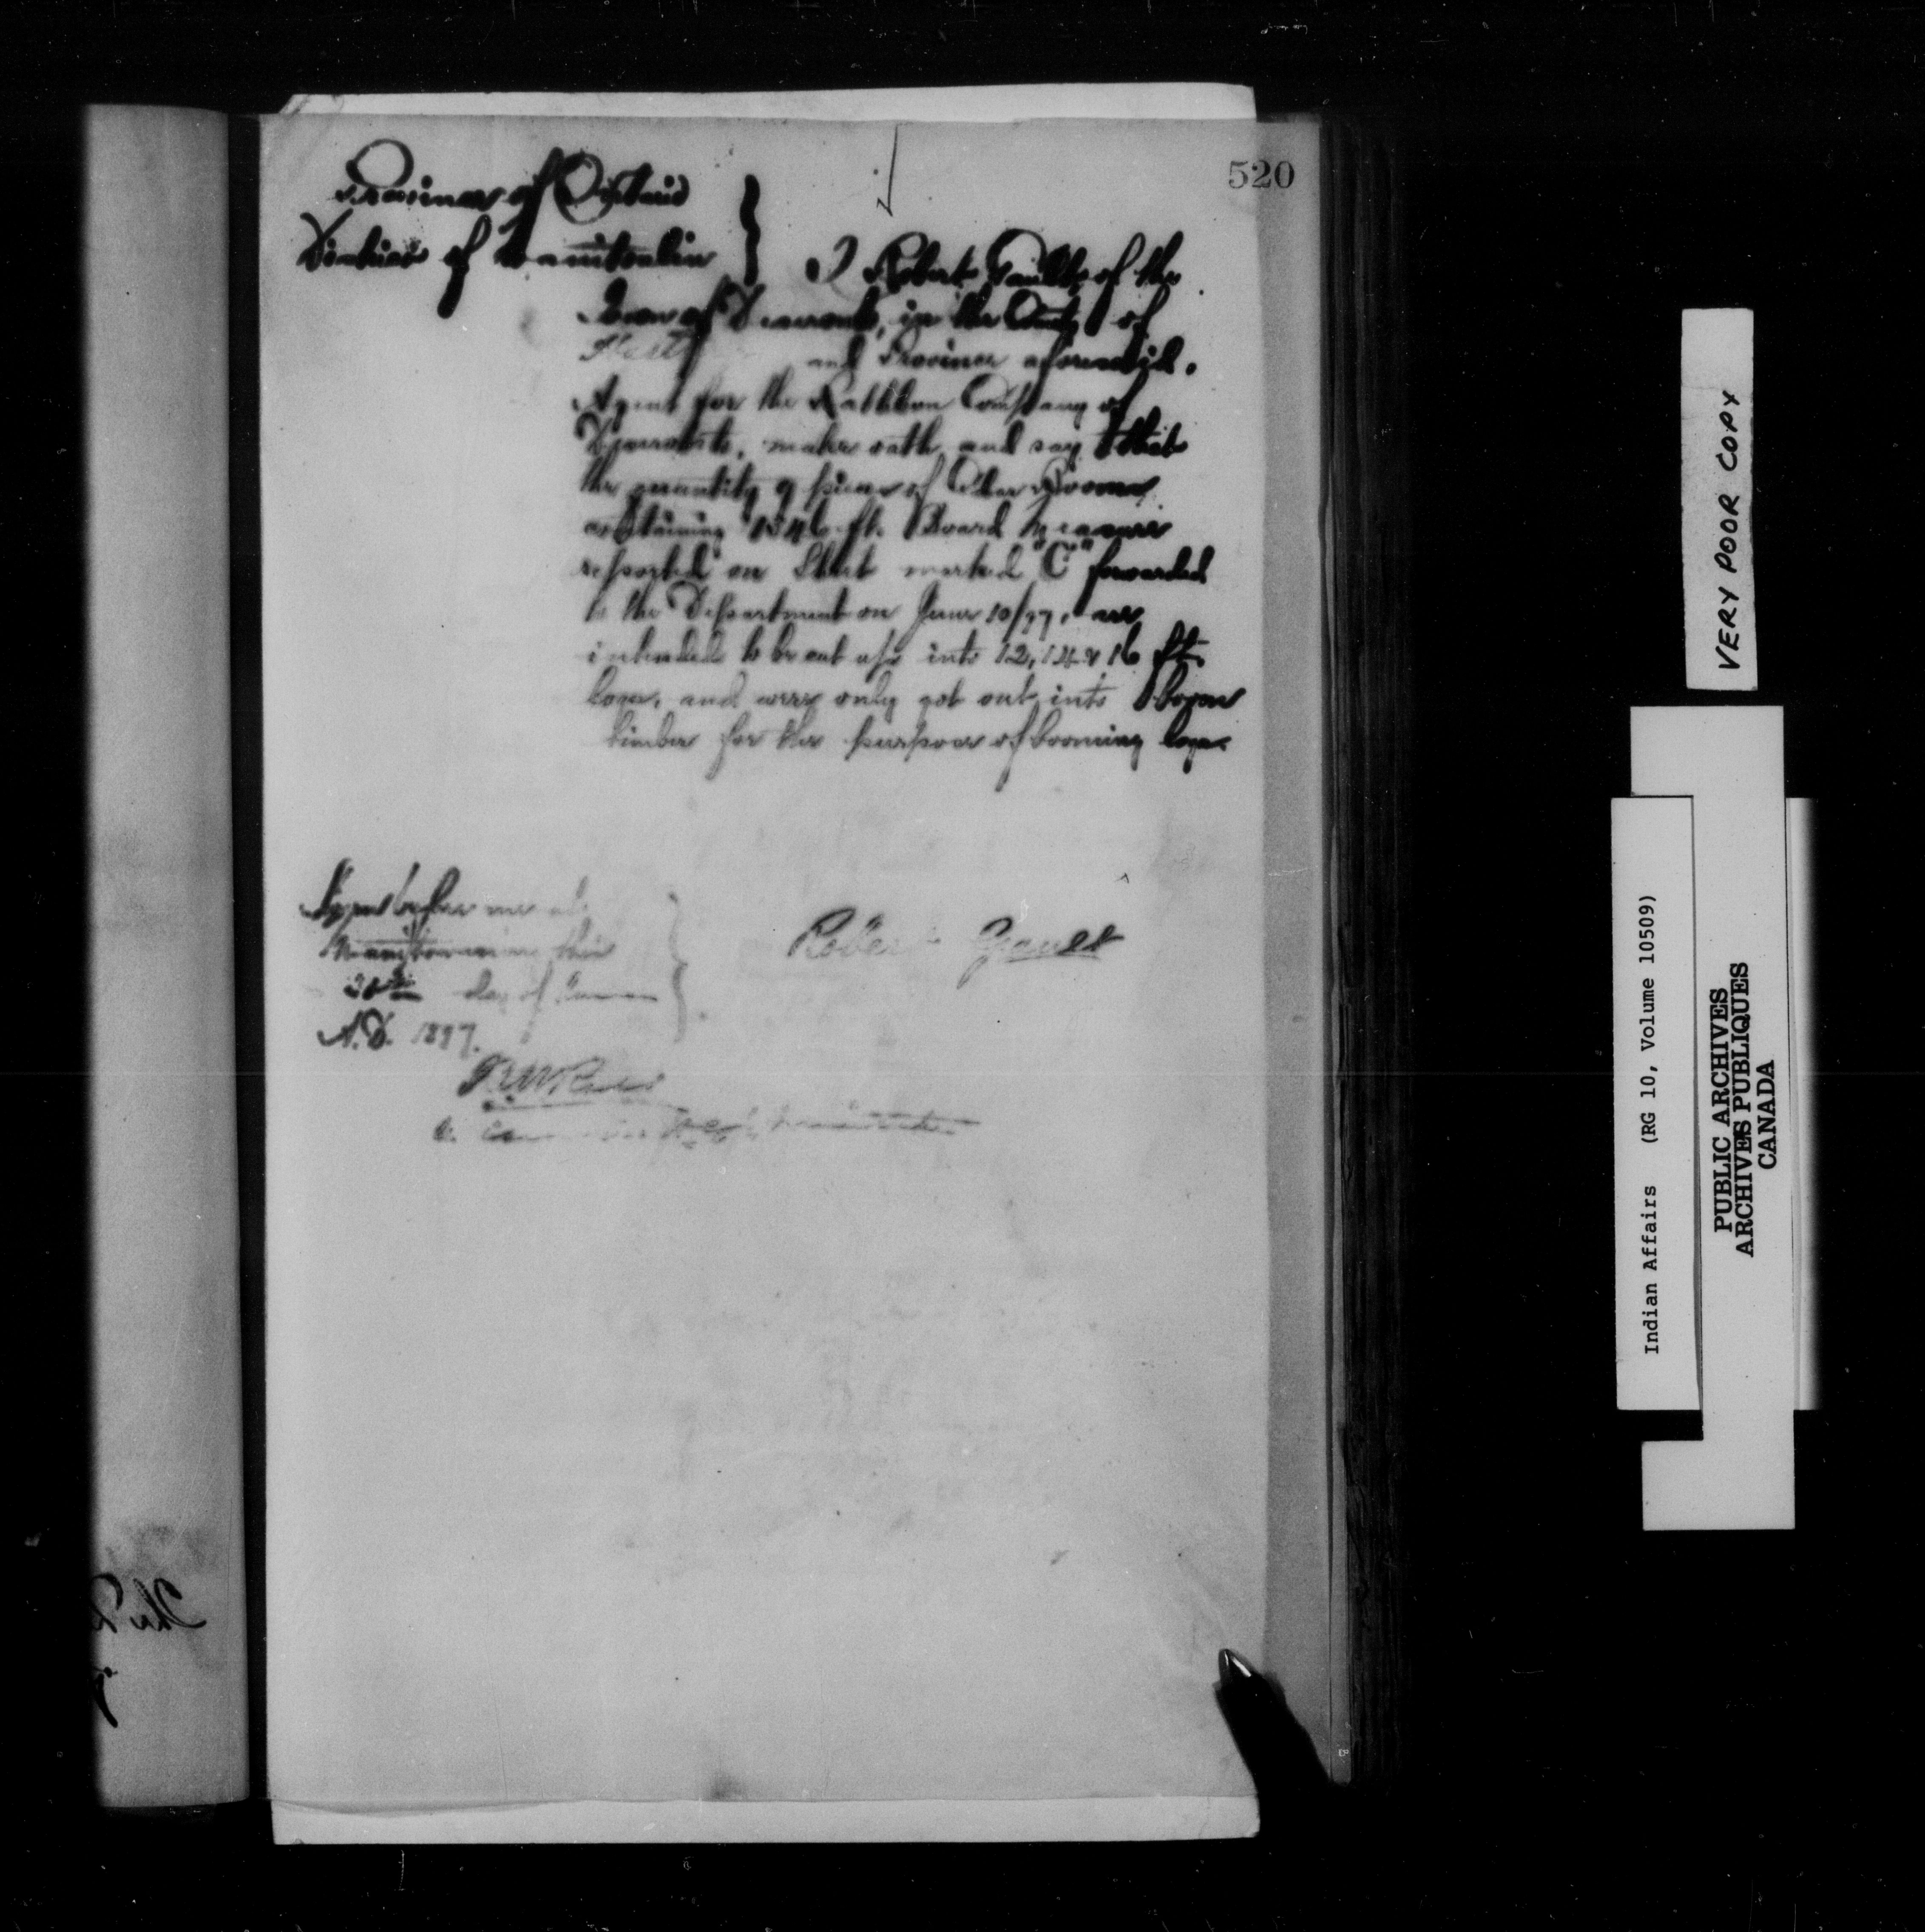 520
Province of Ontario
District of Manitoulin
I Robert Gault of the
Town of Deseronto, in the County of
and Province aforesaid.
Agent for the Rathbun Company of
Deseronto, make oath and say that
the quantity of pieces of Boom
containing 1546 ft. Board Measure
reported on Sheet marked "C" forwarded
to the Department on June 10/97, are
intended to be cut up into 12, 14 & 16 ft.
logs, and were only got out into boom
timber for the purpose of booming logs.
Sworn before me at
Manitowaning this
30th day of June
A.D. 1897.
Robert Gault
VERY POOR COPY
Indian Affairs (RG 10, Volume 10509)
PUBLIC ARCHIVES
ARCHIVES PUBLIQUES
CANADA